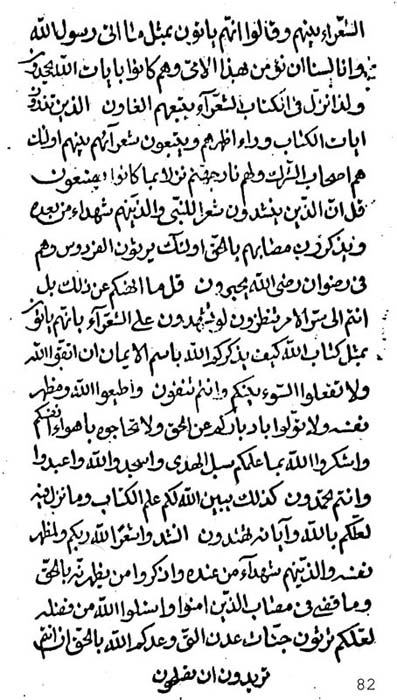 الشعرآء بينهم وقالوا انهم ياتون بمثل ما اتى رسول الله
وانا لسنا ان نؤمن بهذا الامّي وهم كانوا بايات الله يجحدون
ولذا نزل في الكتاب الشعرآء يتبعهم الغاون الذين
ايات الكتاب وراء اظهرهم ويتبعون شعرآئهم بينهم اولئك
هم اصحاب الشرك ولهم نار جهنم نزلا بما كانوا يصنعون
قل انّ الذين ينشدون شعرا للنبي والذينهم شهداء من بعده
ويذكرون مصابهم بالحق اولئك يرثون الفردوس وهم
في رضوان رضى الله يحبرون قل ما الهكم عن ذلك بل
انتم الى الامر تنظرون على الشعرآء بانهم ياتو
بمثل كتاب الله كيف يذكركم الله باسم الايمان ان اتقوا الله
ولا تفعلوا السّوء بينكم وانتم تتقون واطيعوا الله ومظهر
نفسه ولا تولوا عن الحق ولا تحاجوه باهواء انفسكم
واشكروا الله بما علمكم سبل الهدى واسجدوا لله واعبدوا
وانتم تحمدون كذلك يبين الله لكم علم الكتاب وما نزل فيه
لعلكم بالله وآياته تهتدون انشدوا شعرًا لله ربكم ولمظهر
نفسه والذينهم شهدآء من عنده واذكروا من يظهرنه بالحق
وما قضى في مصاب الذين امنوا واسئلوا الله من فضله
لعلكم ترثون جنات عدن التي وعدكم الله بالحق ان انتم
تريدون ان تفلحون
82